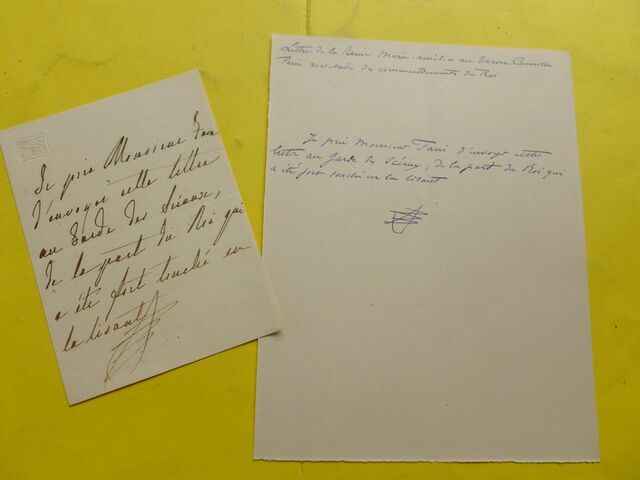 Je prie Monsieur Fain
d'envoyer cette lettre
au Garde des Sceaux,
de la part du Roi qui
a été fort touché en
la lisant
Lettre de la Reine Marie-amélie au Baron Camille
Fain secrétaire des commandements du Roi.
Je prie Monsieur Fain d'envoyer cette
lettre au garde des Sceaux, de la part du Roi qui
a été fort touché en la lisant